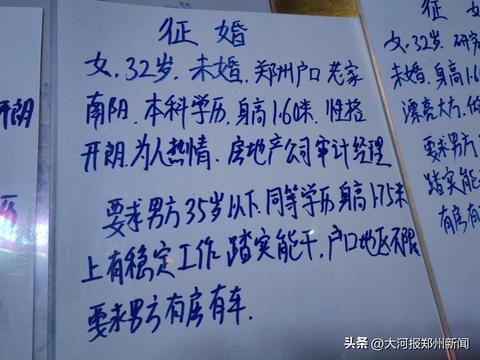 征婚
女.32岁.未婚.郑州户口老家
南阳.本科学历.身高1.60米.性格
开朗.为人热情.房地产公司审计经理
要求男方35岁以下.同等学历身高1.75米
上有稳定工作.踏实能干,户口地区不限
要求男方有房有车.
开朗
征
女.32岁.研
未婚.身高1.6
漂亮大方.
要求男
踏实能
有房有
头条 @大河报郑州新闻